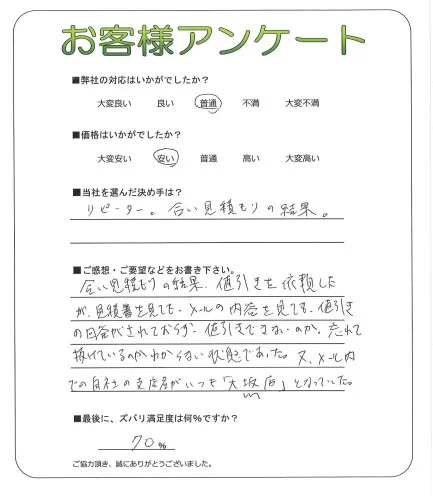 お客様アンケート
■弊社の対応はいかがでしたか?
大変良い 良い 普通 不満 大変不満
■価格はいかがでしたか?
大変安い 安い 普通 高い 大変高い
■当社を選んだ決め手は?
リピーター。合い見積もりの結果。
■ご感想・ご要望などをお書き下さい。
合い見積もりの結果、値引きを依頼した
が、見積書を見ても、メールの内容を見ても、値引き
の回答がされておらず、値引きできないのか、忘れて
抜けているのかわからない状態であった。又、メール内
での自社の支店名がいつも「大坂店」となっていた。
■最後に、ズバリ満足度は何%ですか?
70%
ご協力頂き、誠にありがとうございました。